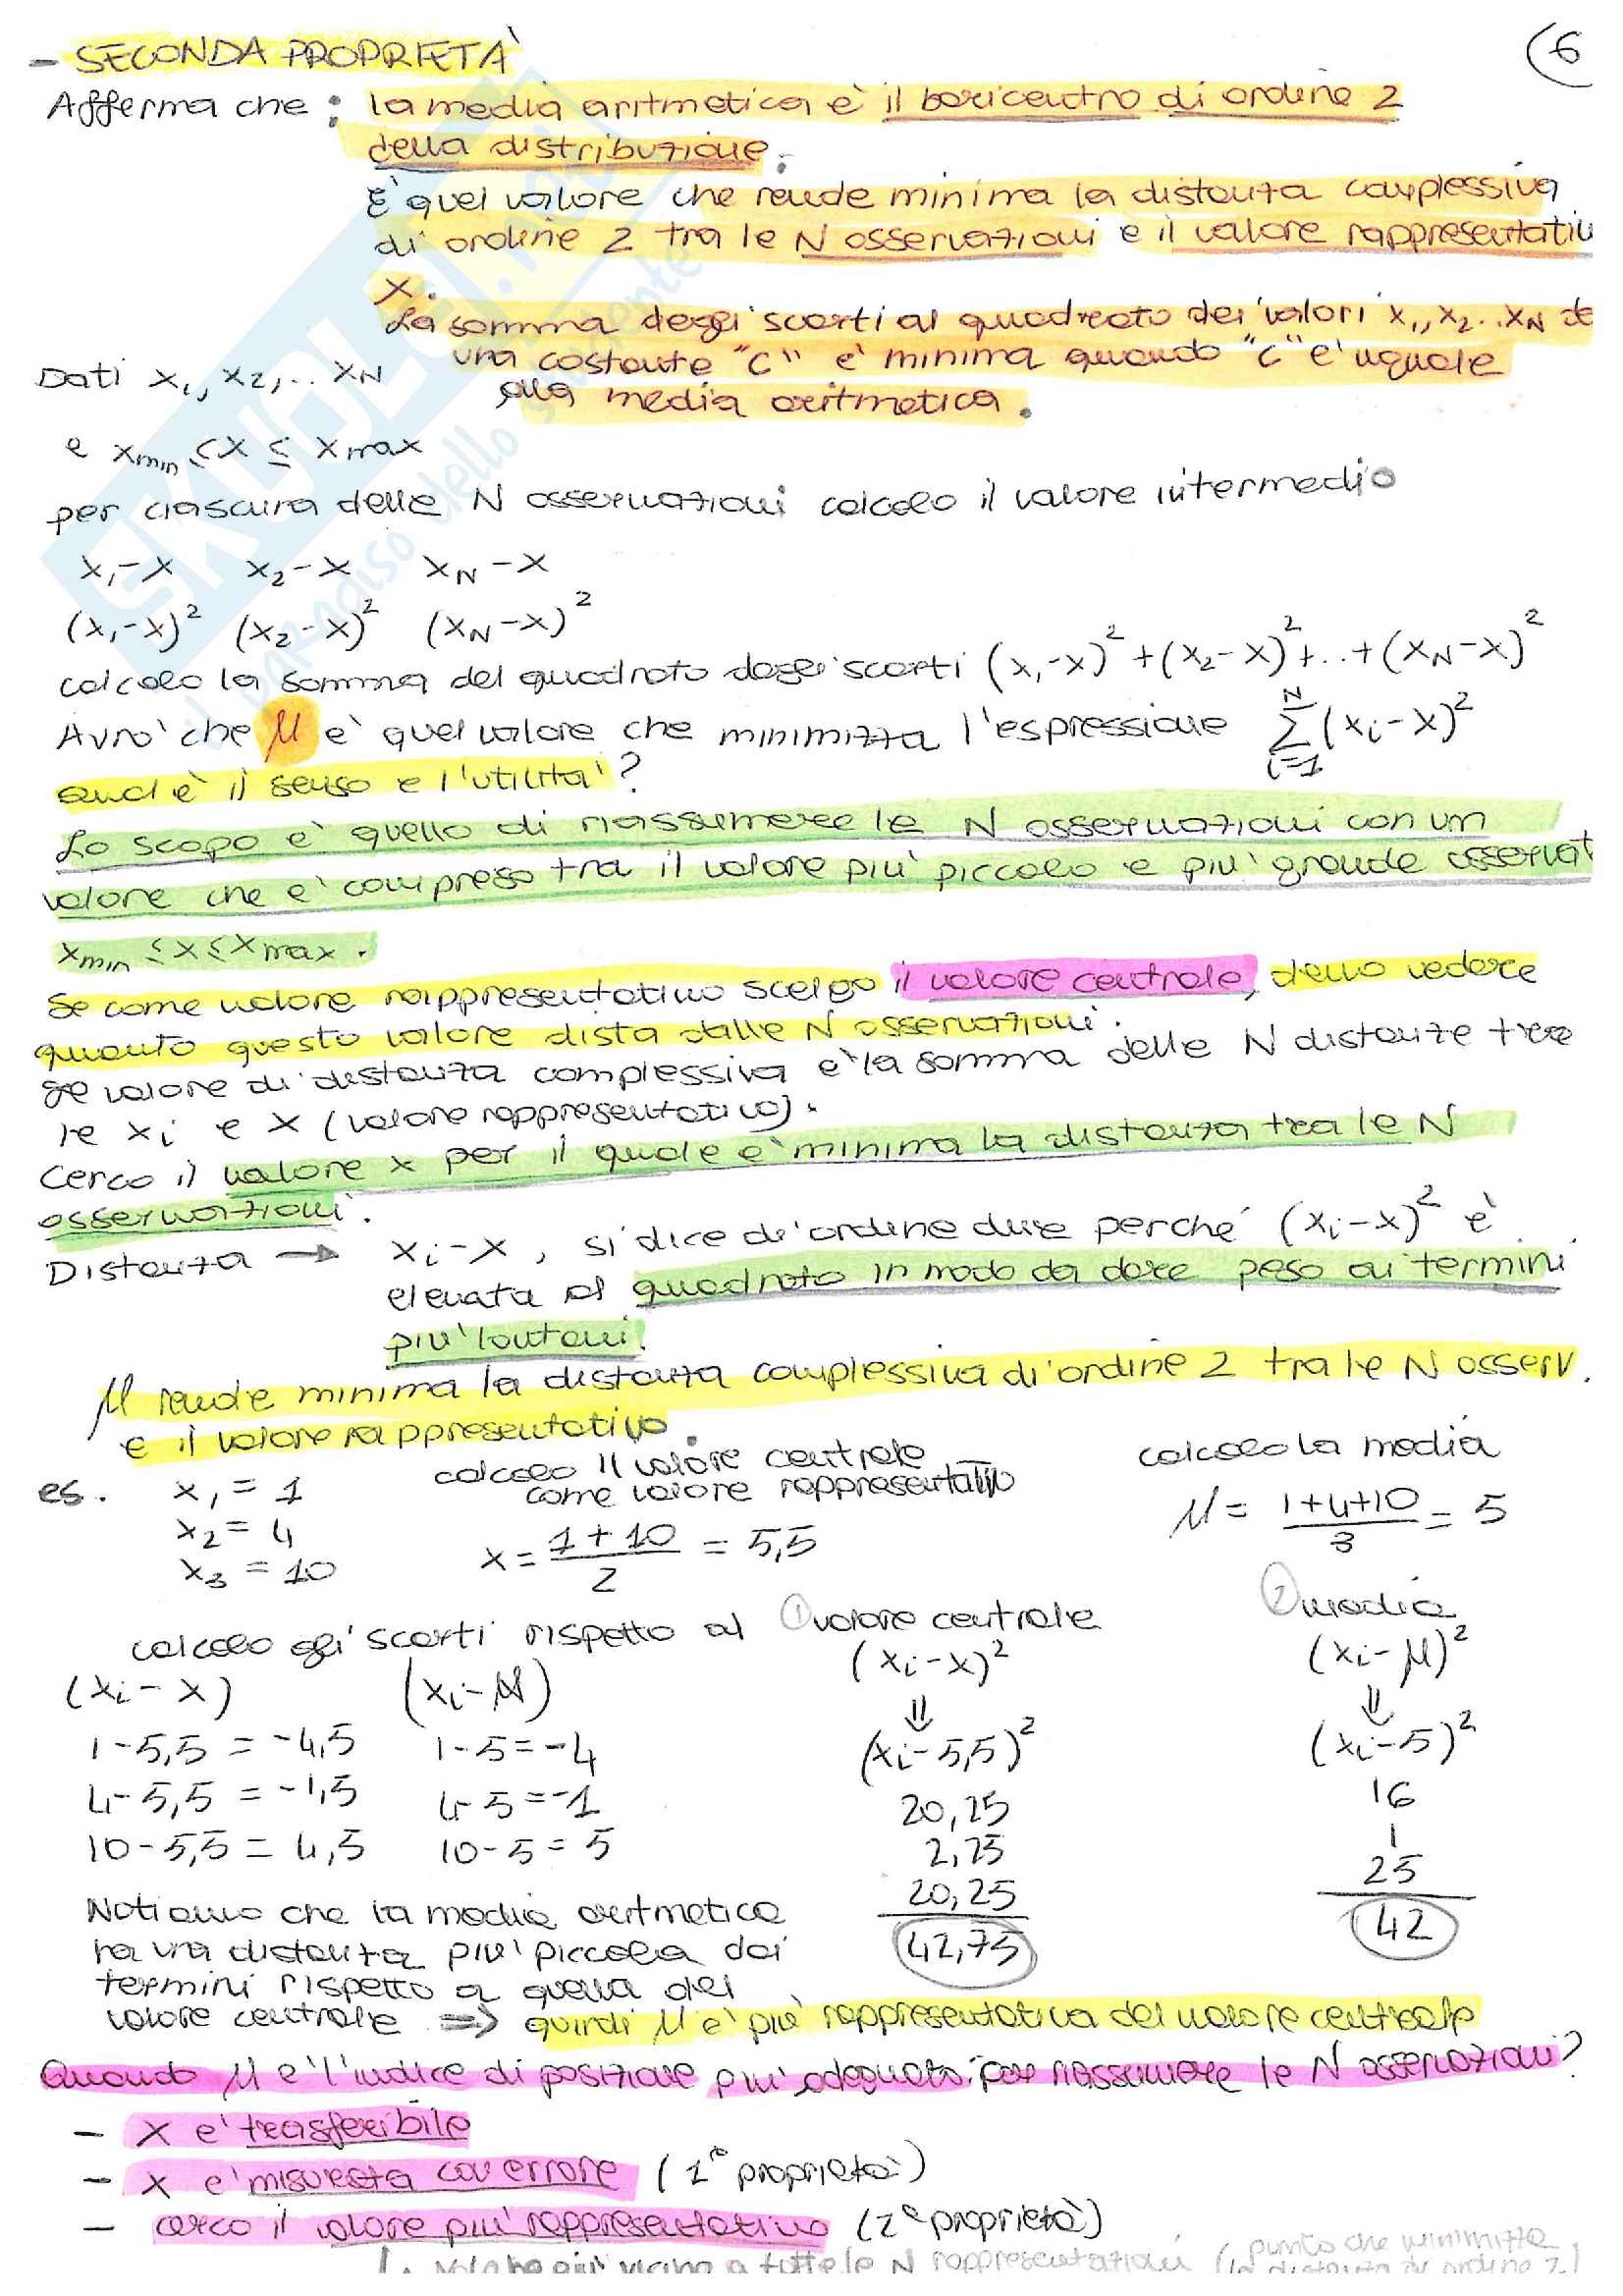 - SECONDA PROPRIETÀ
(6
Afferma che : la media aritmetica è il baricentro di ordine 2
della distribuzione.
È quel valore che rende minima la distanza complessiva
di ordine 2 tra le N osservazioni e il valore rappresentativ
x.
La somma degli scarti al quadrato dei valori x₁, x₂.. xN da
una costante "C" è minima quando "C" è uguale
alla media aritmetica.
Dati x₁, x₂,.. xN
e xmin ≤ x ≤ xmax
per ciascuna delle N osservazioni calcolo il valore intermedio
x₁-x x₂-x xN-x
(x₁-x)² (x₂-x)² (xN-x)²
calcolo la somma del quadrato degli scarti (x₁-x)²+(x₂-x)²+..+(xN-x)²
Avrò che μ è quel valore che minimizza l'espressione ∑ᵢ₌₁ᴺ (xᵢ-x)²
qual è il senso e l'utilità?
Lo scopo è quello di riassumere le N osservazioni con un
valore che è compreso tra il valore più piccolo e più grande osservat
xmin ≤ x ≤ xmax.
Se come valore rappresentativo scelgo il valore centrale, devo vedere
quanto questo valore dista dalle N osservazioni.
Il valore di distanza complessiva è la somma delle N distanze tra
le xᵢ e x (valore rappresentativo).
Cerco il valore x per il quale è minima la distanza tra le N
osservazioni.
Distanza → xᵢ-x, si dice di ordine due perché (xᵢ-x)² è
elevata al quadrato in modo da dare peso ai termini
più lontani.
μ rende minima la distanza complessiva di ordine 2 tra le N osserv.
e il valore rappresentativo.
es. x₁ = 1
x₂ = 4
x₃ = 10
calcolo il valore centrale
come valore rappresentativo
x = (1+10)/2 = 5,5
calcolo la media
μ = (1+4+10)/3 = 5
calcolo gli scarti rispetto al ① valore centrale ② media
(xᵢ-x) (xᵢ-μ) (xᵢ-x)² (xᵢ-μ)²
⇓ ⇓
1-5,5 = -4,5 1-5=-4 (xᵢ-5,5)² (xᵢ-5)²
4-5,5 = -1,5 4-5=-1 20,25 16
10-5,5 = 4,5 10-5=5 2,25 1
20,25 25
42,75 42
Notiamo che la media aritmetica
ha una distanza più piccola dai
termini rispetto a quella del
valore centrale ⇒ quindi μ è più rappresentativa del valore centrale
Quando μ è l'indice di posizione più adeguato per riassumere le N osservazioni?
- x è trasferibile
- x è misurata con errore (1ª proprietà)
- cerco il valore più rappresentativo (2ª proprietà)
vicino a tutte le N rappresentazioni (punto che minimizza
la distanza di ordine 2)
SKUOLA.net
il paradiso dello studente